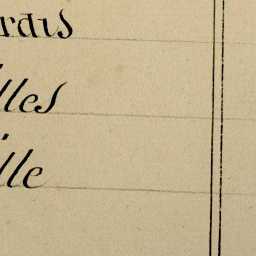 rdis
lles
ille